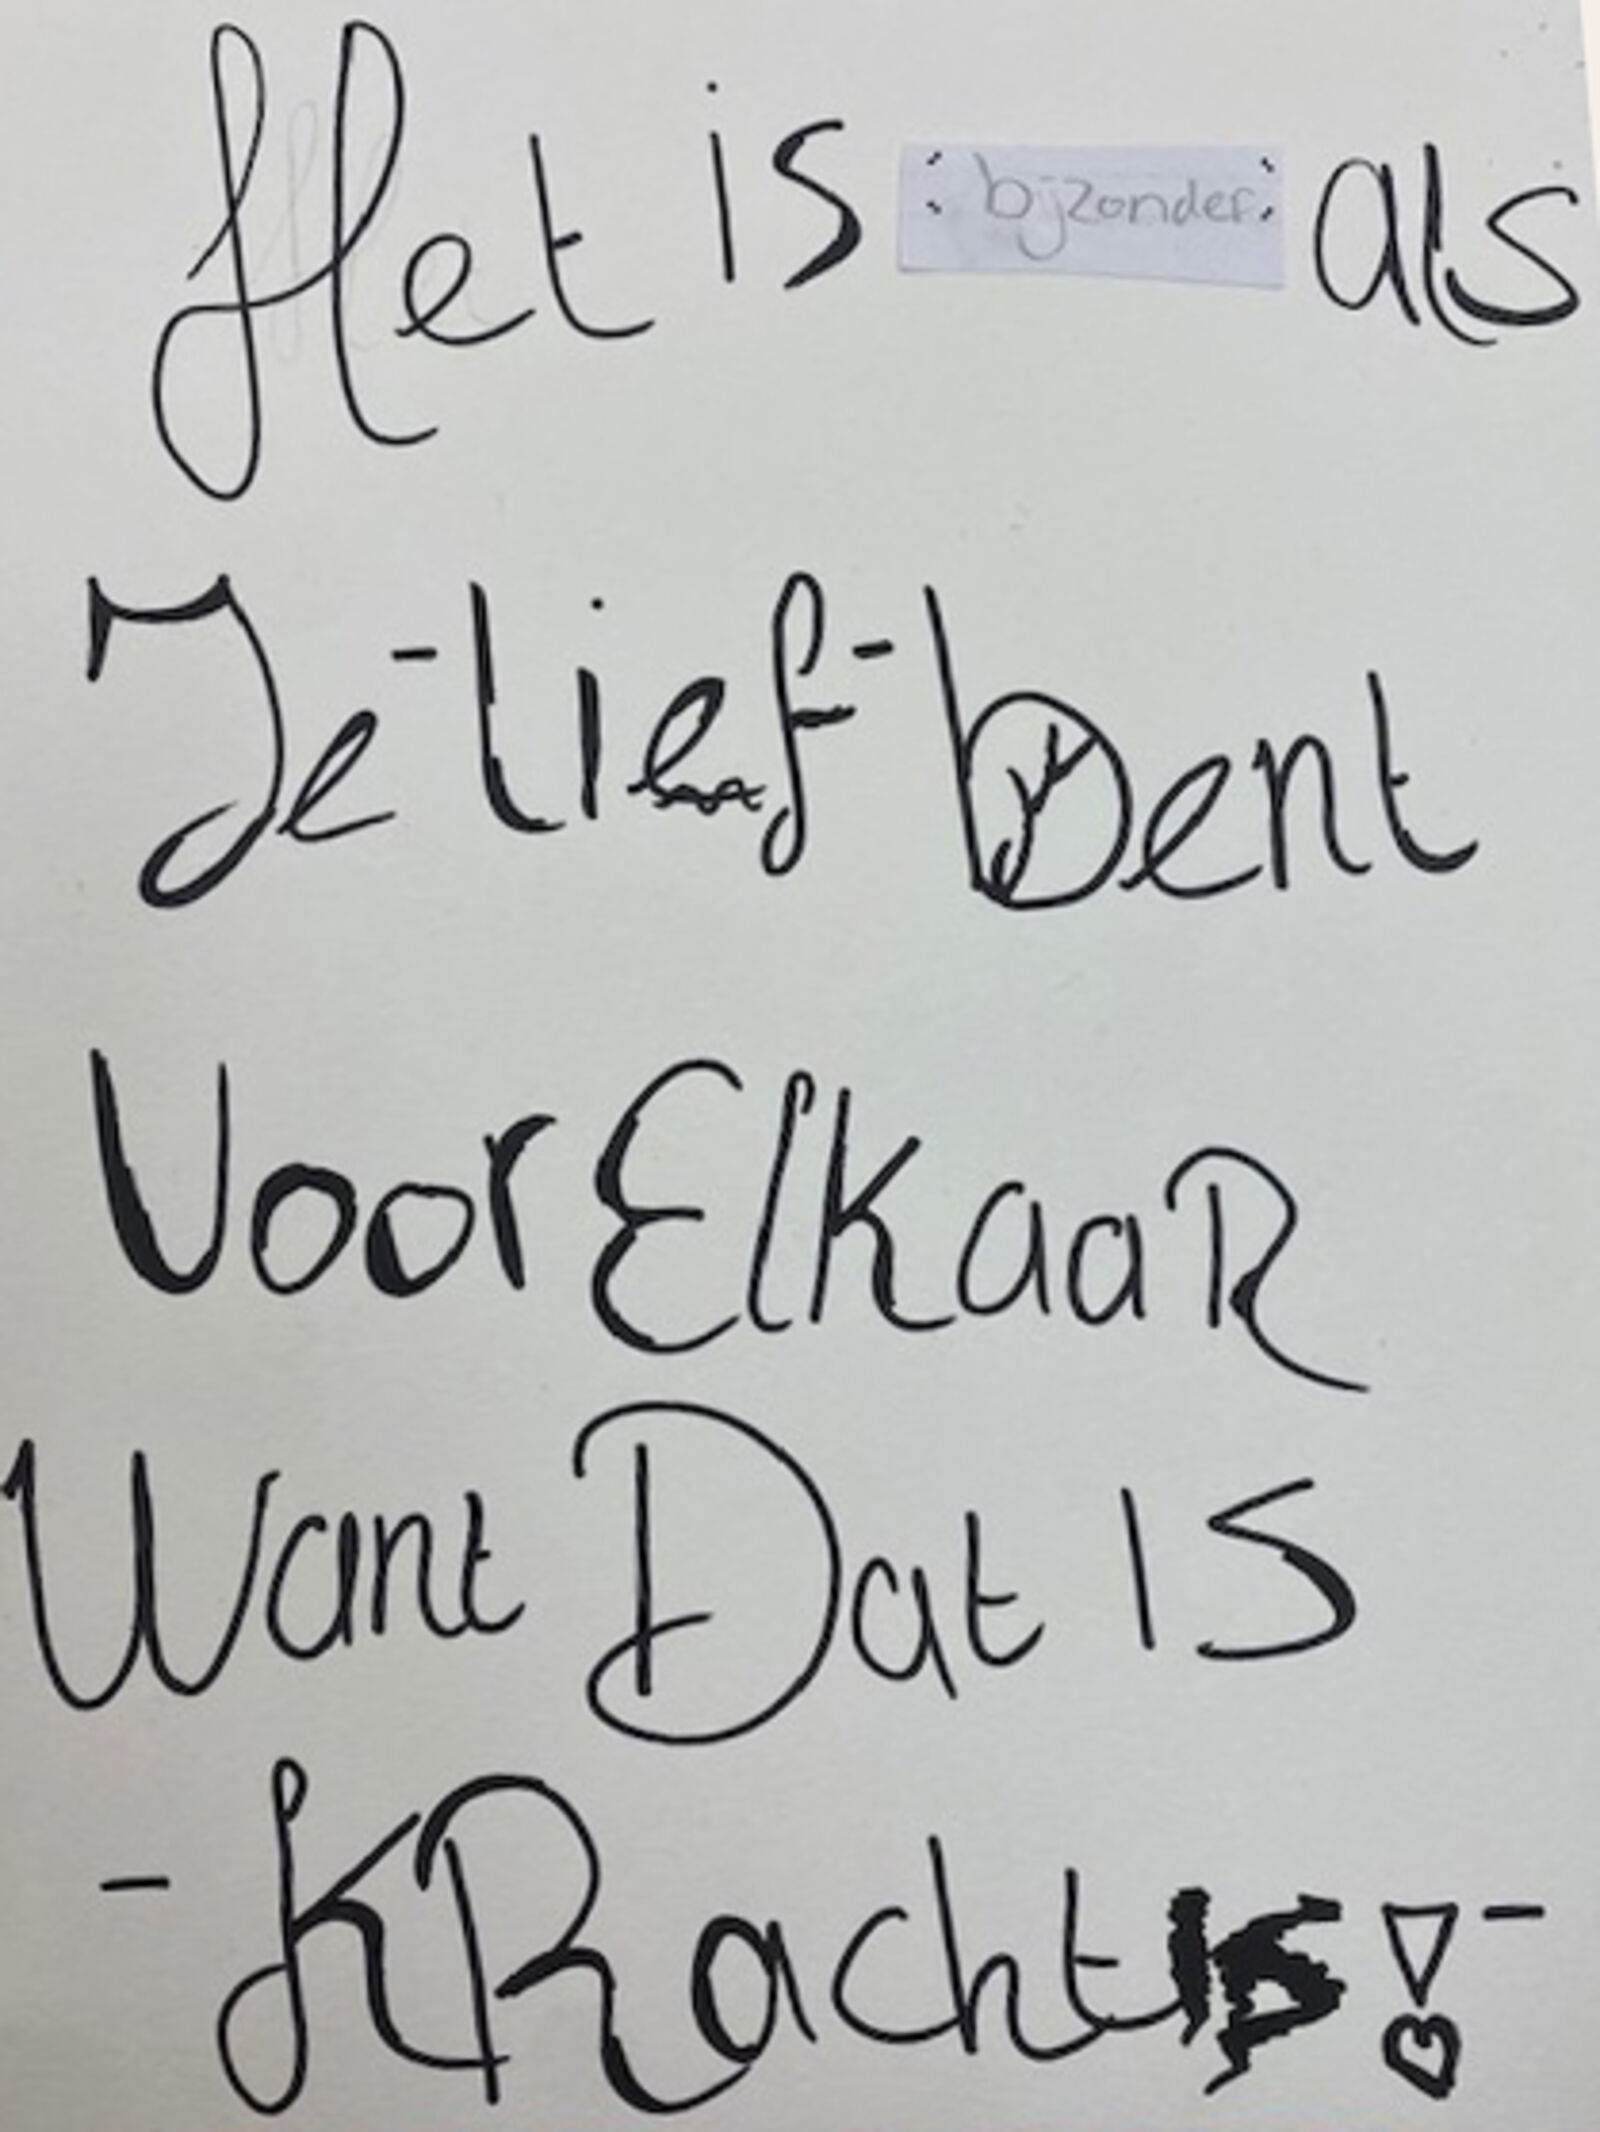 Het is bijzonder. als
Je -lief- bent
Voor ElkaaR
Want Dat IS
- KRachtig! -